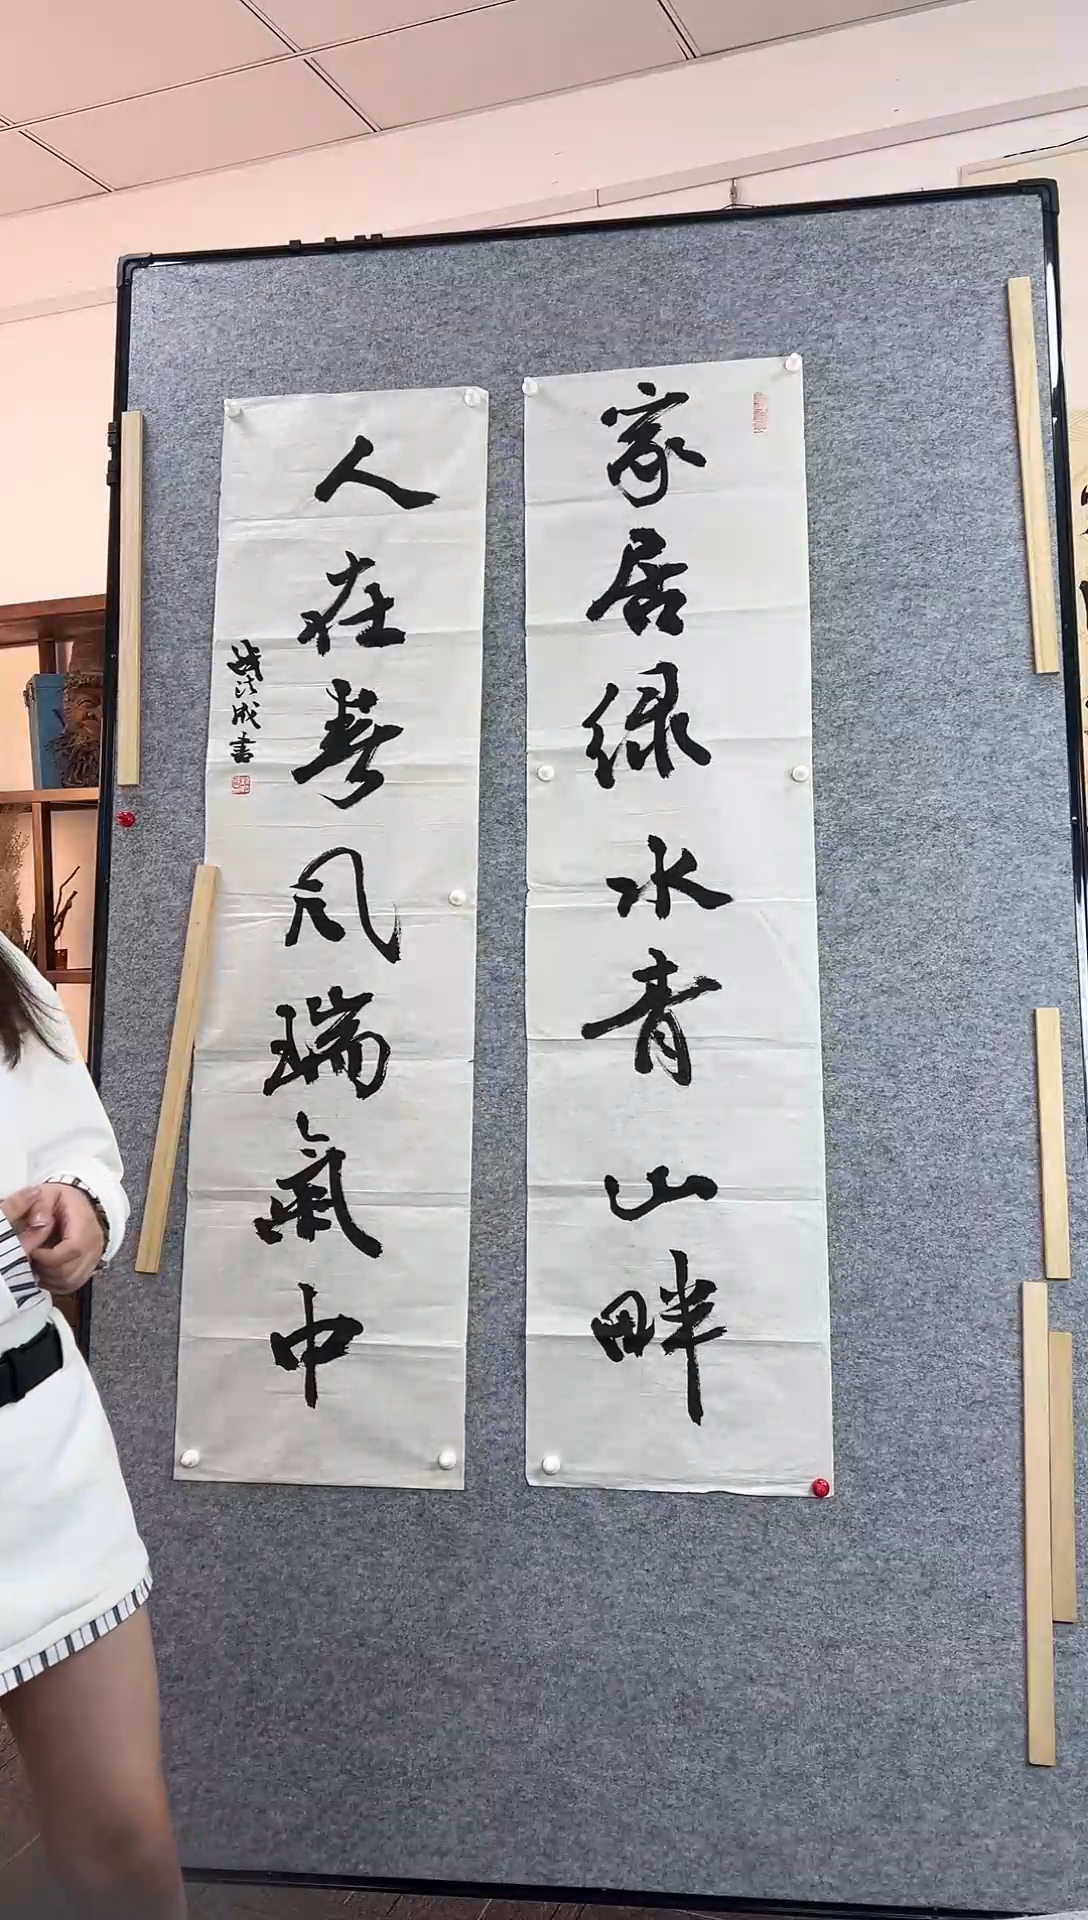 家居绿水青山畔
人在春风瑞氣中
成書